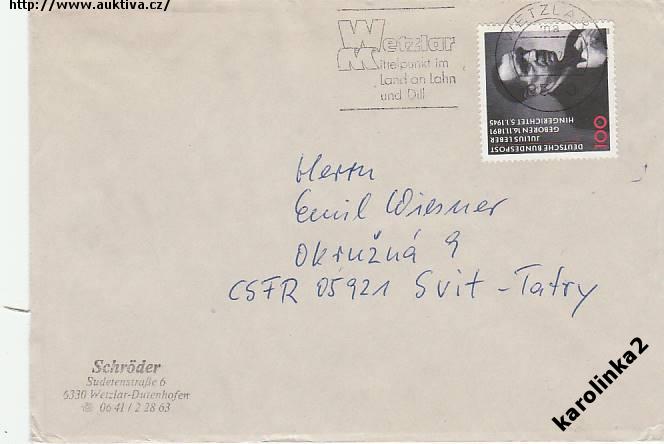 http://www.auktiva.cz/
Wetzlar
Mittelpunkt im
Land an Lahn
und Dill
WETZLAR
na
100
DEUTSCHE BUNDESPOST
JULIUS LEBER
GEBOREN 16.11.1891
HINGERICHTET 5.1.1945
Herrn
Emil Wiesner
Okružná 9
CSFR 05921 Svit - Tatry
Schröder
Sudetenstraße 6
6330 Wetzlar-Dutenhofen
☎ 06 41 / 2 28 63
karolinka2